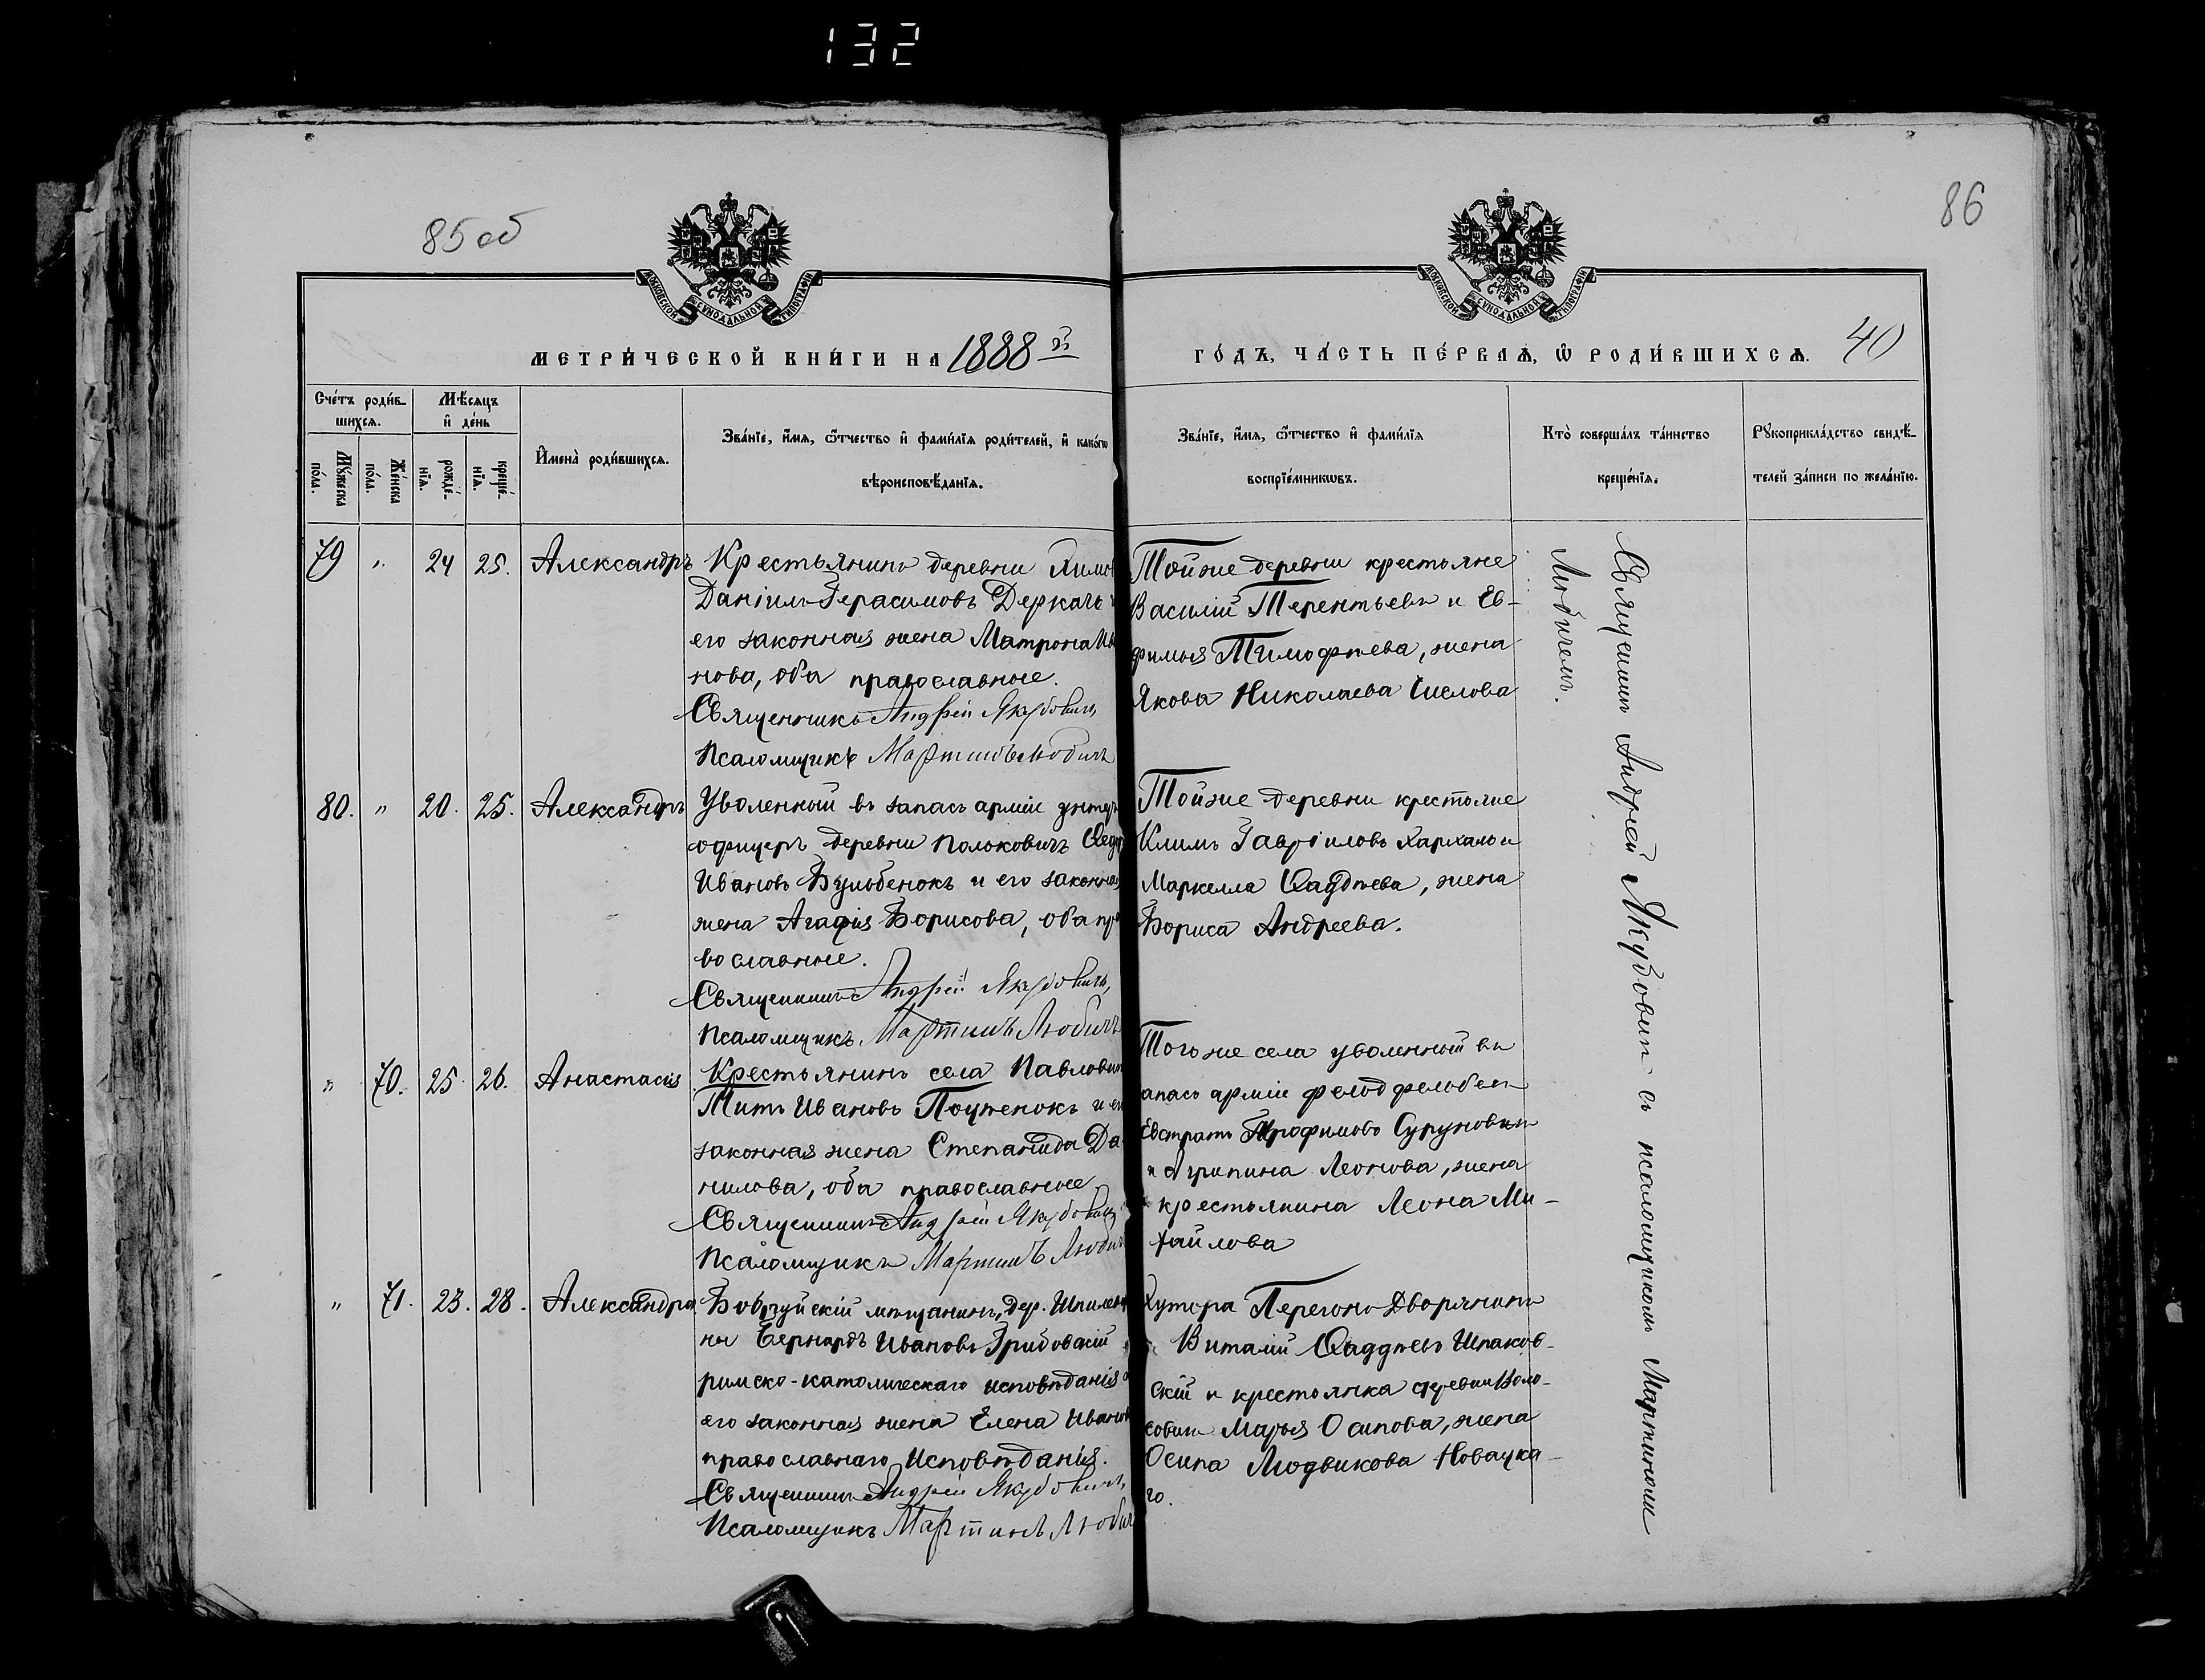 132
85 об
86
МОСКОВСКОЙ СѴНОДАЛЬНОЙ ТИПОГРАФІИ
МОСКОВСКОЙ СѴНОДАЛЬНОЙ ТИПОГРАФІИ
МЕТРИ́ЧЕСКОЙ КНИ́ГИ НА 1888й
ГО́ДЪ, ЧА́СТЬ ПЕ́РВАѦ, Ѡ҆ РОДИ́ВШИХСѦ. 40
Сче́тъ роди́в-
шихсѧ.
Мѣ́сѧцъ
и҆ де́нь
Мꙋ́жеска
по́ла.
Же́нска
по́ла.
рожде́-
нїѧ.
креще́-
нїѧ.
И҆мена̀ роди́вшихсѧ.
Зва́нїе, и҆́мѧ, ѻ҆́тчество и҆ фами́лїѧ роди́телей, и҆ како́гѡ
вѣроисповѣ́данїѧ.
Зва́нїе, и҆́мѧ, ѻ҆́тчество и҆ фами́лїѧ
воспрїе́мникѡвъ.
Кто̀ соверша́лъ та́инство
креще́нїѧ.
Рꙋкоприкла́дство свидѣ́-
телей за́писи по жела́нїю.
79 " 24 25. Александръ Крестьянинъ деревни
Даніилъ Герасимовъ Деркачъ
его законная жена Матрона Ива
нова, оба православные.
Священникъ Андрей Якубовичъ
Псаломщикъ Мартинъ Любичъ
Тойже деревни крестьяне
Василій Терентьевъ и Ев-
фимья Тимофѣева, жена
Якова Николаева
80. " 20. 25. Александръ Уволенный въ запасъ арміи унтеръ
офицеръ деревни Полюковичъ Ѳедо
Ивановъ Бульбенокъ и его законная
жена Агафія Борисова, оба пра
вославные.
Священникъ Андрей Якубовичъ,
Псаломщикъ Мартинъ Любичъ
Тойже деревни крестьяне
Климъ Гавріиловъ Хархаль и
Маркелла Ѳаддѣева, жена
Бориса Андреева.
" 70. 25. 26. Анастасія Крестьянинъ села Павлович
Титъ Ивановъ Поцтенокъ и его
законная жена Степанида Да-
нилова, оба православные
Священникъ Андрей Якубовичъ
Псаломщикъ Мартинъ Любич
Тогоже села уволенный въ
апасъ арміи фельдфебель
Евстратъ Трофимовъ Суруновичъ
и Агрипина Леонова, жена
крестьянина Леона Ми-
хайлова
" 71. 23. 28. Александра Бобруйскій мѣщанинъ, дер. Шпилев
ны Бернардъ Ивановъ Грибовскій
римско-католическаго исповѣданія
его законная жена Елена Иванов
православнаго исповѣданія.
Священникъ Андрей Якубовичъ,
Псаломщикъ Мартинъ Любич
Хутора Перегоно Дворянинъ
Виталій Ѳаддѣевъ Шпаков-
скій и крестьянка деревни Воло-
совичъ Марья Осипова, жена
Осипа Людвикова Новацка-
го.
Священникъ Андрей Якубовичъ съ псаломщикомъ Мартиномъ
Любичемъ.